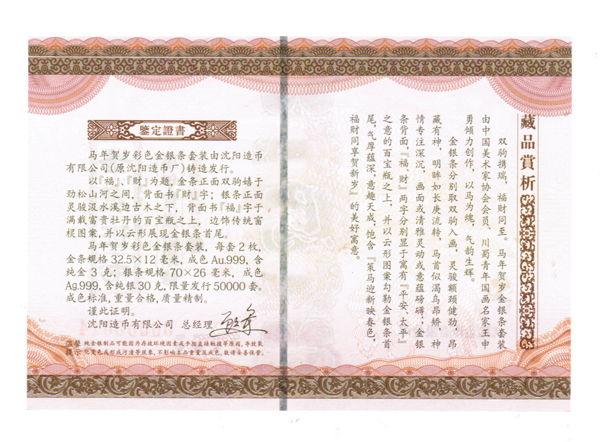 鑒定證書
马年贺岁彩色金银条套装由沈阳造币
有限公司(原沈阳造币厂)铸造发行。
以『福』、『财』为题,金条正面双驹嬉于
劲松山河之间,背面书『财』字;银条正面
灵骏汲水溪边古木之下,背面书『福』字于
满载富贵牡丹的百宝瓶之上,边饰传统窗
棂图案,并以云形展现金银条首尾。
马年贺岁彩色金银条套装,每套2枚,
金条规格32.5×12毫米,成色Au.999,含
纯金3克;银条规格70×26毫米,成色
Ag.999,含纯银30克,限量发行50000套。
成色标准,重量合格,质量精制。
谨此证明。
沈阳造币有限公司 总经理
藏品賞析
双驹携瑞,福财同至。马年贺岁金银条套装
由中国美术家协会会员、川蜀青年国画名家王申
勇倾力创作,以马为魂,气韵生辉。
金银条分别取双驹入画,灵骏额颈健劲,昂
藏有神,明眸如长庚流转,马首似渴乌昂矫,神
情专注深沉,画面或清雅灵动或意蕴磅礴;金银
条背面『福』『财』两字分别显于寓有『平安、太平』
之意的百宝瓶之上,并以云形图案勾勒金银条首
尾,气厚蕴深,意趣天成,饱含『策马迎新映春色,
福财同享贺新岁』的美好寓意。